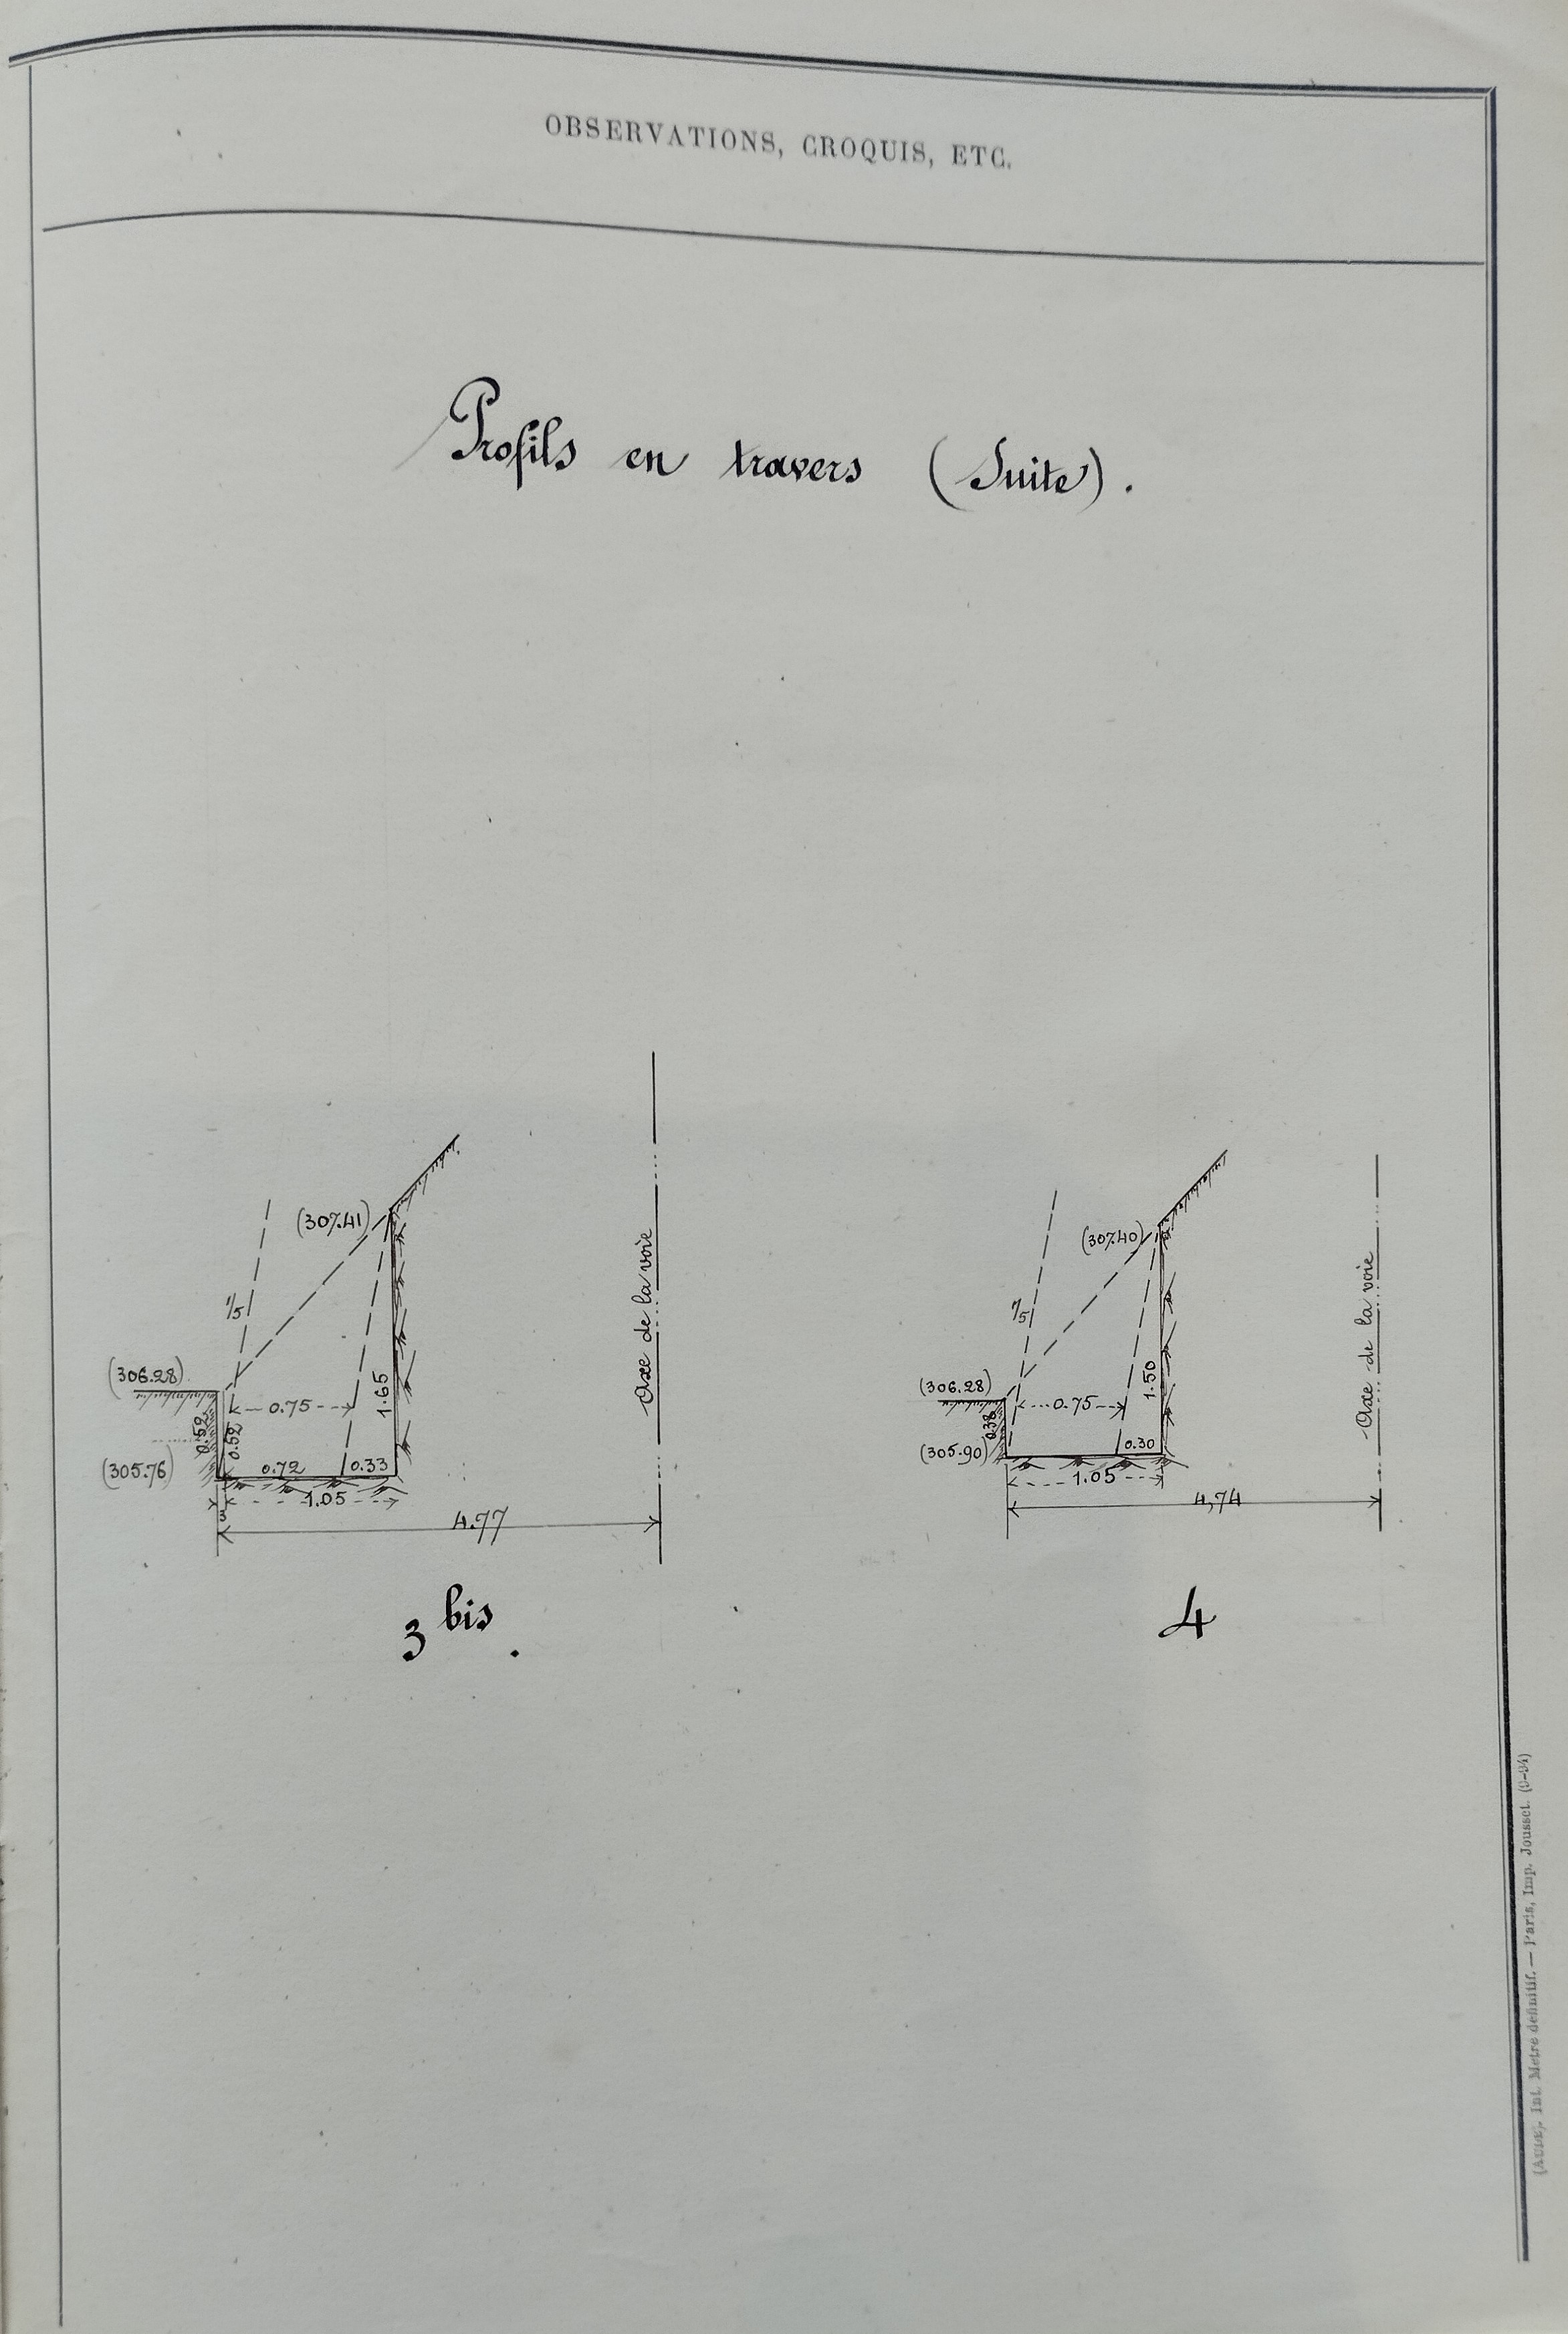 OBSERVATIONS, CROQUIS, ETC.
Profils en travers (Suite).
(307.41)
1/5
(306.28)
0.75
1.65
0.52
0.52
(305.76)
0.72
0.33
1.05
3
4.77
Axe de la voie
3 bis.
(307.40)
1/5
(306.28)
0.75
1.50
0.38
(305.90)
0.30
1.05
4,74
Axe de la voie
4
Int. Métré définitif. — Paris, Imp. Jousset.